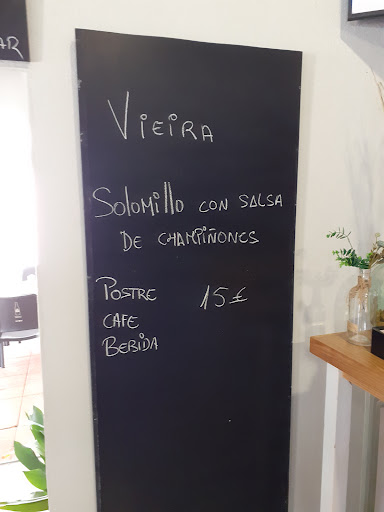 AR
VIEIRA
SOLOMILLO CON SALSA
DE CHAMPIÑONES
POSTRE 15€
CAFE
BEBIDA